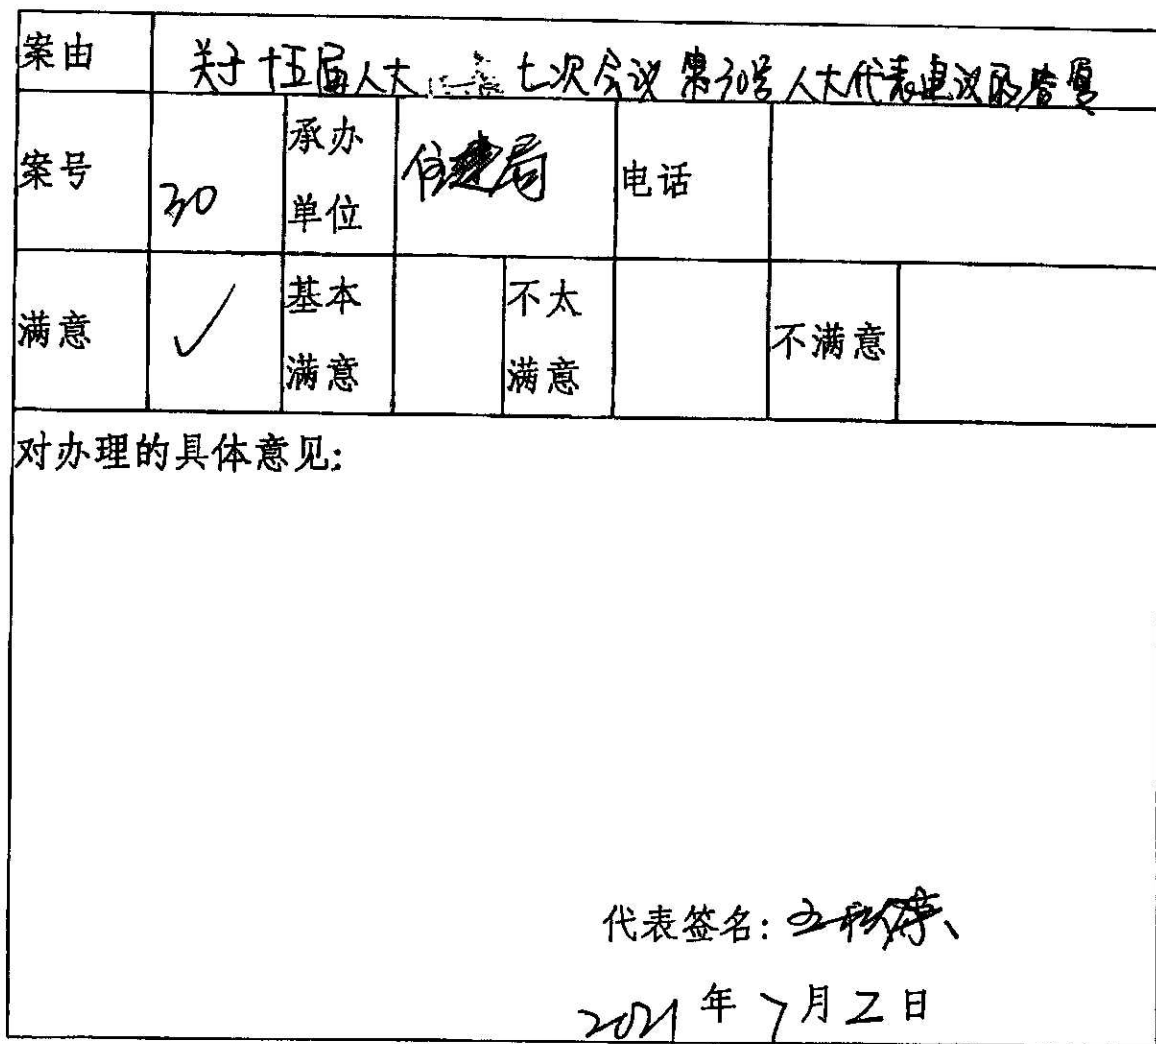 案由 关于十五届人大 七次会议第30号人大代表建议的答复
案号 30 承办单位 住建局 电话
满意 ✓ 基本满意 不太满意 不满意
对办理的具体意见:
代表签名:
2021年7月2日